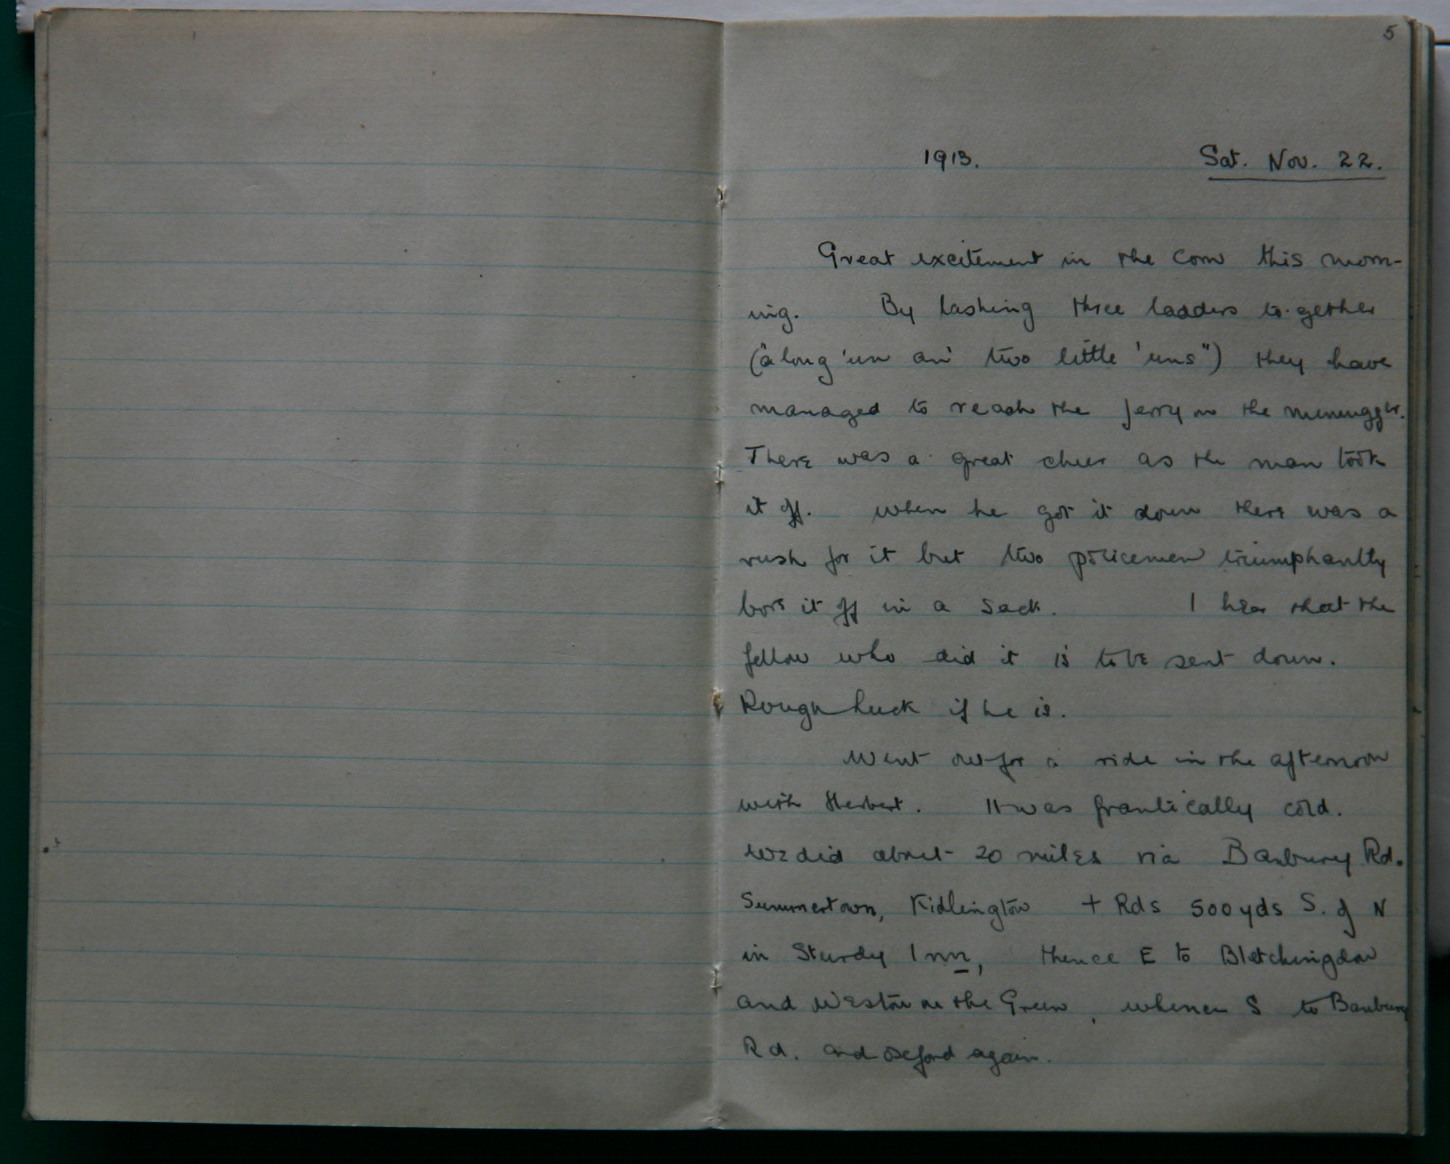 5
1913. Sat. Nov. 22.
Great excitement in the Corn this morn-
ing. By lashing three ladders to-gether
("a long 'un an' two little 'uns") they have
managed to reach the Jerry on the memugger.
There was a great cheer as the man took
it off. When he got it down there was a
rush for it but two policemen triumphantly
bore it off in a sack. I hear that the
fellow who did it is to be sent down.
Rough luck if he is.
Went out for a ride in the afternoon
with Herbert. It was frantically cold.
We did about 20 miles via Banbury Rd.
Summertown, Kidlington + Rds 500 yds S. of N
in Sturdy Inn, thence E to Bletchingdon
and Weston on the Green, whence S to Banbury
Rd. and Oxford again.